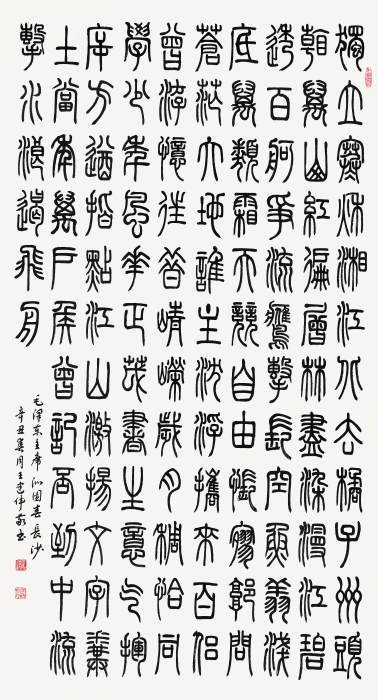 獨立寒秋湘江北去橘子州頭
看萬山紅徧層林盡染漫江碧
透百舸爭流鷹擊長空魚翔淺
底萬類霜天競自由悵寥廓問
蒼茫大地誰主沈浮攜來百侶
曾游憶往昔崢嶸歲月稠恰同
學少年風華正茂書生意气揮
斥方遒指點江山激揚文字糞
土當年萬戶侯曾記否到中流
擊水浪遏飛舟
毛澤東主席沁園春長沙
辛丑